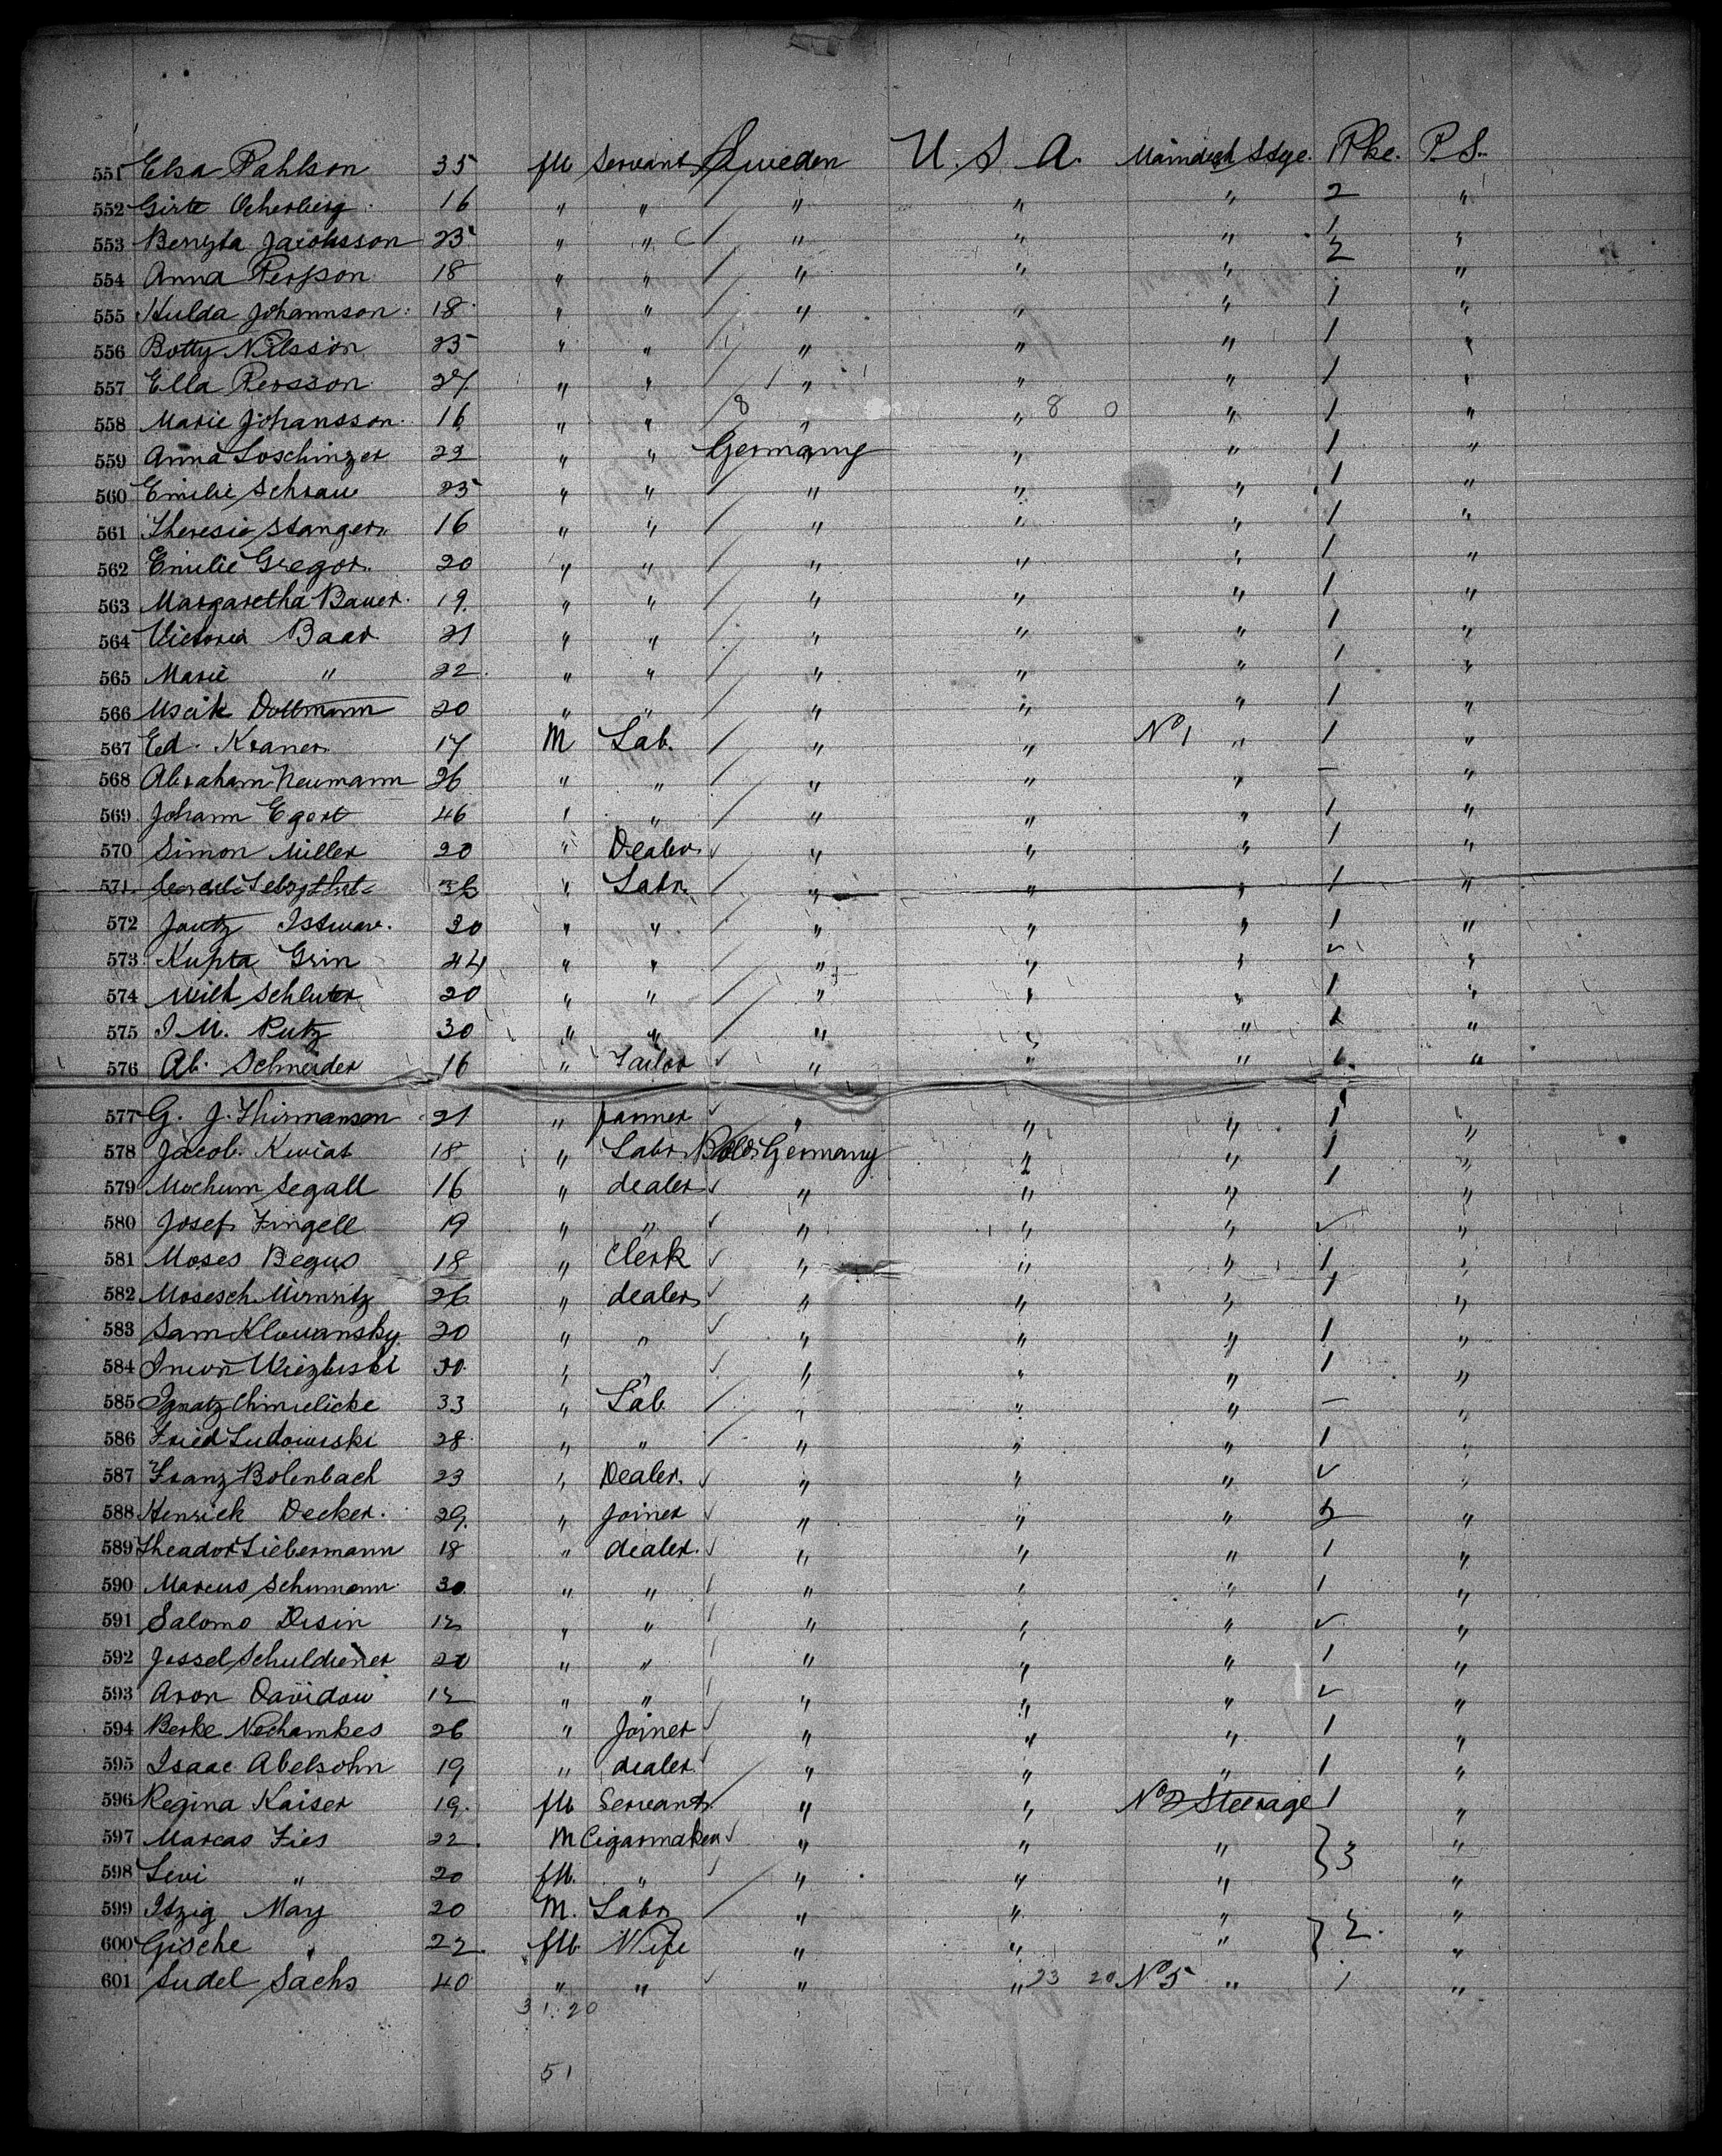 551 Elsa Pahlson 35 fM Servant Sweden U. S. A. Maindeck Stge. 1 Pke. P. S.
552 Girte 16 " " " " " 2 "
553 Bengta Jacobsson 25 " " " " " 1 "
554 Anna Persson 18 " " " " " 2 "
555 Hulda Johannson 18 " " " " " 1 "
556 Botty Nilsson 25 " " " " " 1 "
557 Ella Persson 27 " " " " " 1 "
558 Marie Johansson 16 " " 8 " " 8 0 " 1 "
559 Anna Loschinger 22 " " Germany " " 1 "
560 Emilie Schrau 25 " " " " " 1 "
561 Theresie Stanger 16 " " " " " 1 "
562 Emilie Gregor 20 " " " " " 1 "
563 Margaretha Bauer 19 " " " " " 1 "
564 Victoria Baar 21 " " " " " 1 "
565 Marie " 22 " " " " " 1 "
566 Dottmann 20 " " " " " 1 "
567 Ed. Kraner 17 M Lab. " " No 1 " 1 "
568 Abraham Neumann 26 " " " " " - "
569 Johann Egert 46 " " " " " 1 "
570 Simon Miller 20 " Dealer " " " 1 "
571 36 " Labr. " " " 1 "
572 Istwav. 30 " " " " " 1 "
573 Kupta Grin 44 " " " " " ✓ "
574 Schluter 20 " " " " " 1 "
575 I M. Putz 30 " " " " " 1 "
576 Ab. Schneider 16 " Tailor " " " 1 "
577 G. J. Thirmanson 21 " farmer " " " 1 "
578 Jacob Kwiat 18 " Labr. Germany " " 1 "
579 Mochum Segall 16 " dealer " " " 1 "
580 Josef Fingell 19 " " " " " ✓ "
581 Moses Begus 18 " Clerk " " " 1 "
582 Mosesch 26 " dealer " " " 1 "
583 Sam Klowansky 20 " " " " " 1 "
584 30 " " " " " 1 "
585 Ignatz Chmielicke 33 " Lab. " " " - "
586 Fried Ludowiski 28 " " " " " 1 "
587 Franz Bolenbach 23 " Dealer. " " " ✓ "
588 Henrick Decker. 29 " Joiner " " " 2 "
589 Theador Liebermann 18 " dealer. " " " 1 "
590 Marcus Schumann 30 " " " " " 1 "
591 Salomo Disin 12 " " " " " ✓ "
592 Jossel Schuldiener 20 " " " " " 1 "
593 Aron Davidow 12 " " " " " ✓ "
594 Berke Nechamkes 26 " Joiner " " " 1 "
595 Isaac Abelsohn 19 " dealer " " " 1 "
596 Regina Kaiser 19 fM Servant " " No 2 Steerage 1 "
597 Marcas Fies 22 M Cigarmaker " " " } 3 "
598 Levi " 20 fM. " " " " "
599 Itzig May 20 M. Labr " " " } 2. "
600 Gische " 22 fM Wife " " " "
601 Sudel Sachs 40 " " " " 23 20 No 5 " 1 "
31. 20
51